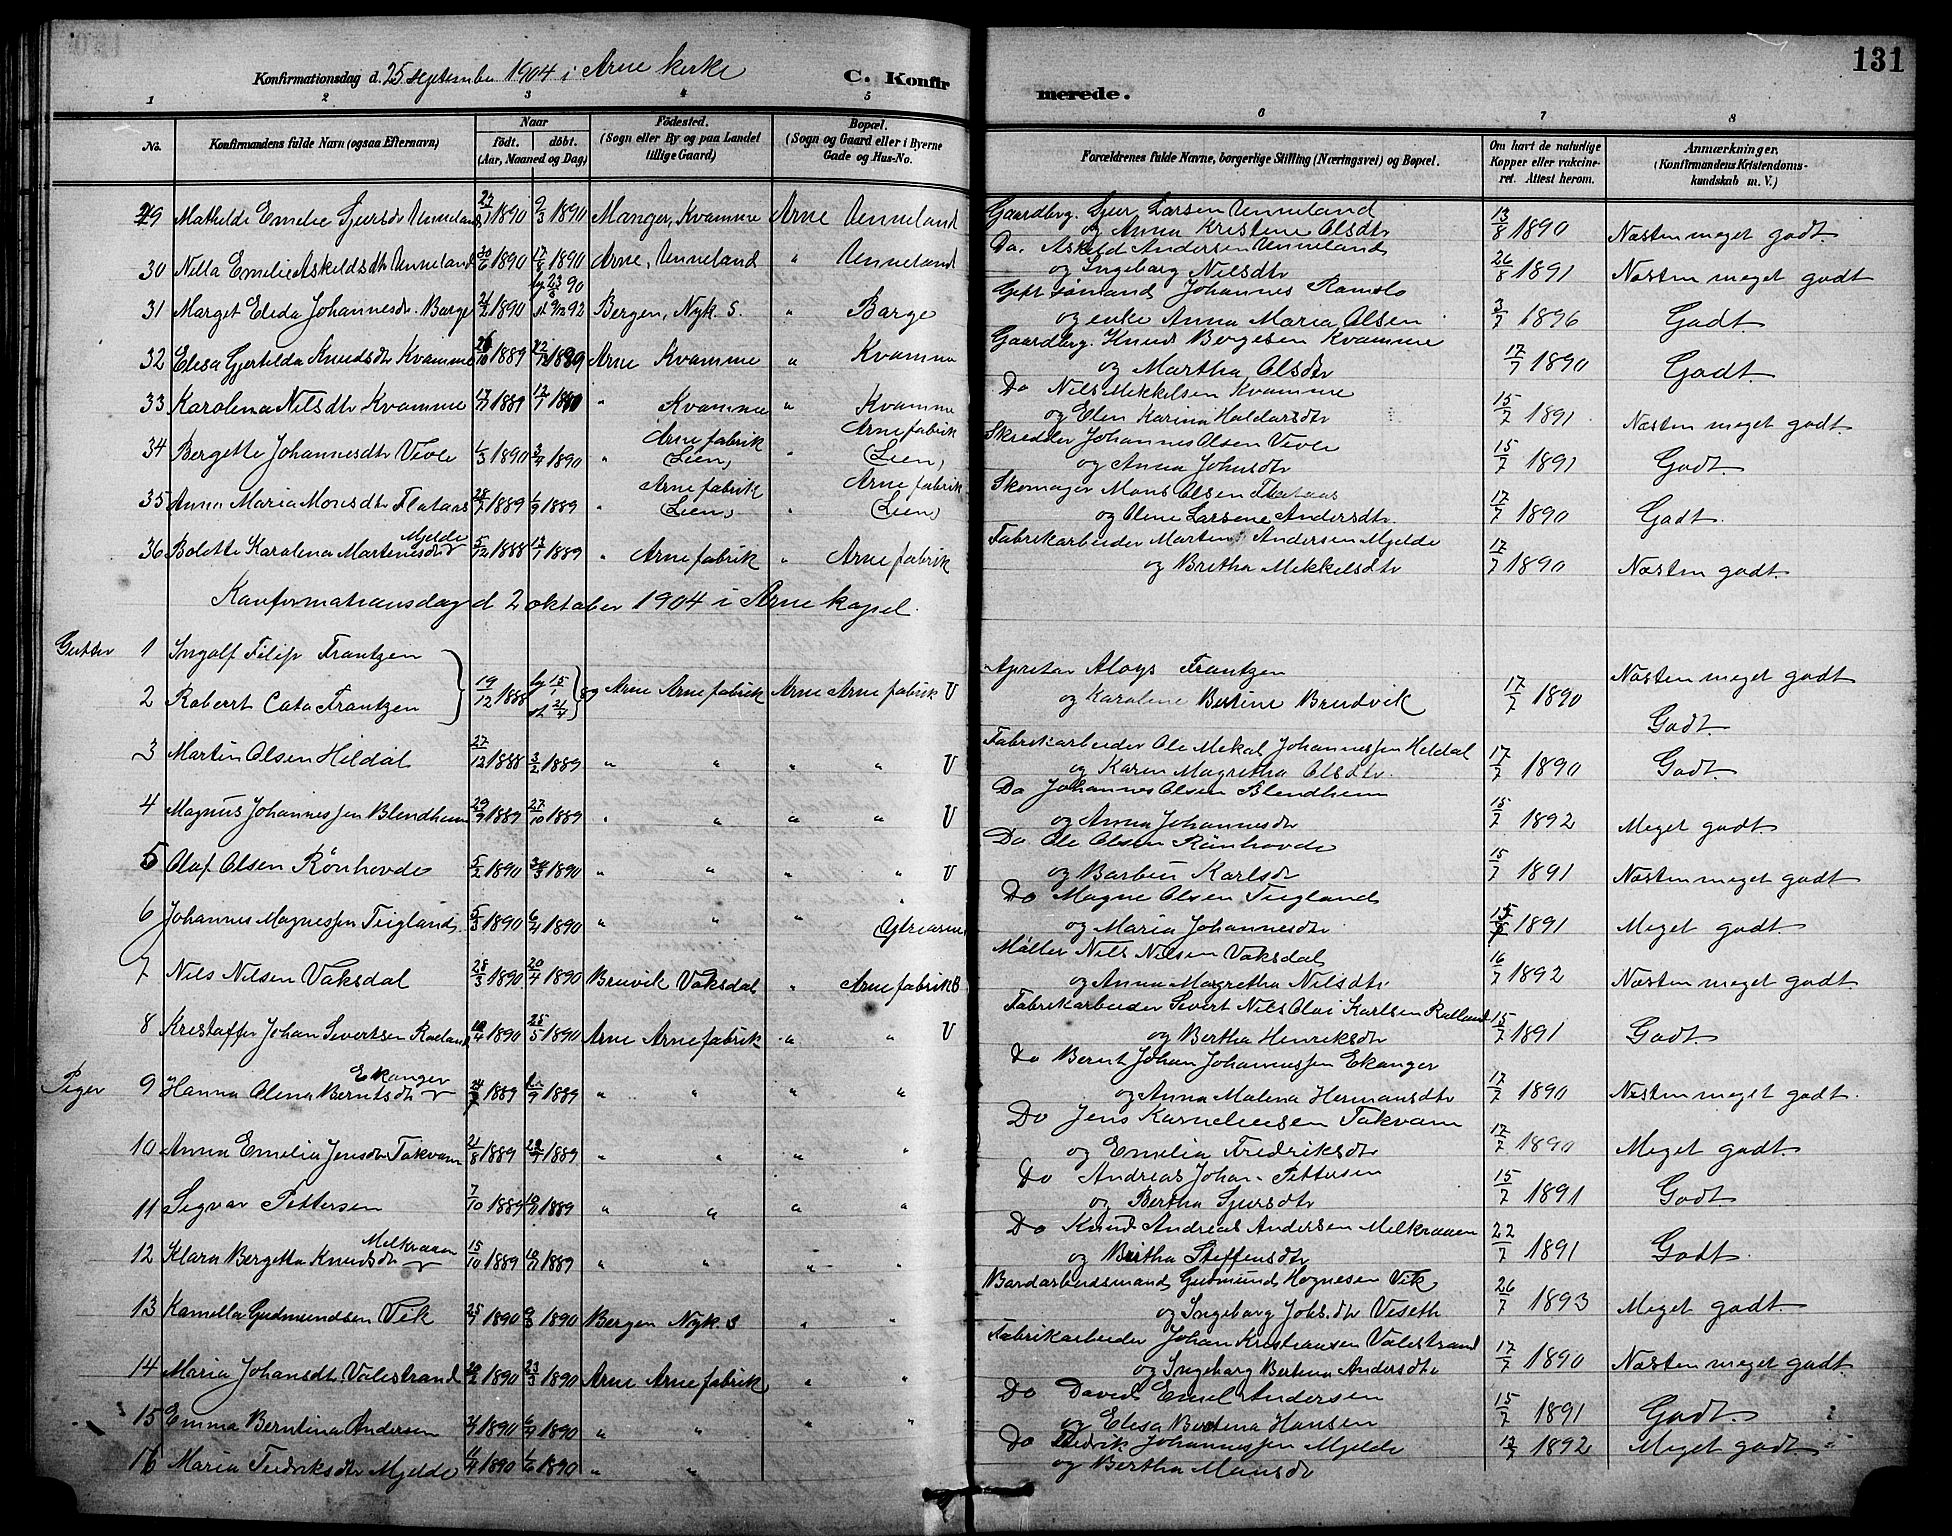 131
Konfirmationsdag d. 25 september 1904 i Arne kirke
C. Konfirmerede.
1 2 3 4 5 6 7 8
No. Konfirmandens fulde Navn (ogsaa Efternavn) Naar født. døbt. (Aar, Maaned og Dag) Fødested. (Sogn eller By og paa Landet tillige Gaard) Bopæl. (Sogn og Gaard eller i Byerne Gade og Hus-No. Forældrenes fulde Navne, borgerlige Stilling (Næringsvei) og Bopæl. Om havt de naturlige Kopper eller vakcineret. Attest herom. Anmærkninger. (Konfirmandens Kristendomskundskab m. V.)
29 Mathilde Emelie Sjursdtr Unneland 1890 9/3 1890 Manger, Kvamme Arne Unneland Gaardbrg. Sjur Larsen Unneland og Anna Kristine Olsdtr 13/8 1890 Næsten meget godt.
30 Nilla Emelie Askildsdtr Unneland 30/6 1890 17/8 1890 Arne, Unneland " Unneland Do. Askild Andersen Unneland og Ingeborg Nilsdtr 26/8 1891 Næsten meget godt
31 Marget Elida Johannesdr. Borge 1890 Bergen, Nyk. S. " Borge Johannes Ramslo og enke Anna Maria Olsen 3/7 1896 Godt
32 Elisa Gjertilda Knudsdtr Kvamme 1889 Arne Kvamme " Kvamme Gaardbrg. Knud Børgesen Kvamme og Martha Olsdtr 17/7 1890 Godt.
33 Karolina Nilsdtr Kvamme 1889 " Kvamme " Kvamme Do Nils Mikkelsen Kvamme og Elen Karina Haldorsdtr 15/7 1891 Næsten meget godt.
34 Bergette Johannesdtr Viole 1/3 1890 3/4 1890 " Arne fabrik (Lien) " Arne fabrik (Lien) Skredder Johannes Olsen Viole og Anna Johnsdtr 15/7 1891 Godt.
35 Anna Maria Monsdtr Flataas 28/7 1889 1/9 1889 " Arne fabrik (Lien) " Arne fabrik (Lien) Skomager Mons Olsen Flataas og Oline Larsine Andersdtr. 17/7 1890 Godt.
36 Bolette Karolina Martinusdtr Mjelde 5/12 1888 1889 " Arne fabrik " Arne fabrik Fabrikarbeider Martin Andersen Mjelde og Britha Mikkelsdtr 17/7 1890 Næsten godt.
Konfirmationsdag d 2 oktober 1904 i Arne kapel.
Gutter 1 Ingolf Filip Frantzen
2 Robert Cato Frantzen 19/12 1888 Arne Arne fabrik Arne Arne fabrik U Apretør Aloys Frantzen og Karoline Bertine Brudvik 17/7 1890 Næsten meget godt Godt.
3 Martin Olsen Hildal 27/12 1888 3/2 1889 " " " " U Fabrikarbeider Ole Mikal Johannessen Hildal og Karen Magretha Olsdtr. 17/7 1890 Godt.
4 Magnus Johannessen Blendheim 29/9 1889 27/10 1889 " " " " U Do Johannes Olsen Blendheim og Anna Johannesdtr 15/7 1892 Meget godt
5 Olaf Olsen Rönhovde 5/2 1890 1890 " " " " U Do Ole Olsen Rönhovde og Barbru Karlsdtr 15/7 1891 Næsten meget godt
6 Johannes Magnessen Teigland 5/3 1890 6/4 1890 " " " Ytrearne Do Magne Olsen Teigland og Maria Johannesdtr 1891 Meget godt.
7 Nils Nilsen Vaksdal 28/3 1890 20/4 1890 Bruvik Vaksdal " Arne fabrik B Møller Nils Nilsen Vaksdal og Anna Magretha Nilsdtr 16/7 1892 Næsten meget godt.
8 Kristoffer Johan Sivertsen 1890 25/5 1890 Arne Arne fabrik " " U Fabrikarbeider Sivert Nils Olai Karlsen og Bertha Henriksdtr 15/7 1891 Godt.
Piger 9 Hanna Olena Berntsdtr Ekanger 1889 1889 " " " " Do Bernt Johan Johannessen Ekanger og Anna Malena Hermansdtr 17/7 1890 Næsten meget godt.
10 Anna Emelia Jensdtr Takvam 21/8 1889 1889 " " " " Do Jens Kornelius​sen Takvam og Emelia Fredriksdtr 17/7 1890 Meget godt.
11 Signar Pettersen 7/10 1889 1889 " " " " Do Andreas Johan Pettersen og Bertha Sjursdtr 15/7 1891 Godt
12 Klara Bergetta Knudsdtr Melkraaen 15/10 1889 1889 " " " " Do Knud Andreas Andersen Melkraaen og Britha Steffensdtr 22/7 1891 Godt.
13 Kamilla Gudmundsen Vik 1890 1890 Bergen Nyk. S " " Gudmund Hognesen Vik og Ingeborg Johs.dtr Veseth 26/7 1893 Meget godt.
14 Maria Johansdtr Valestrand 1890 23/3 1890 Arne Arne fabrik " " Fabrikarbeider Johan Kristiansen Valestrand og Ingeborg Bertina Andersdtr 17/7 1890 Næsten meget godt
15 Emma Berntina Andersen 1890 1890 " " " " Do David Emil Andersen og Elisa Hansen 15/7 1891 Godt.
16 Maria Fredriksdtr Mjelde 1890 1/6 1890 " " Do Fredrik Johannessen Mjelde og Bertha Monsdtr 1892 Meget godt